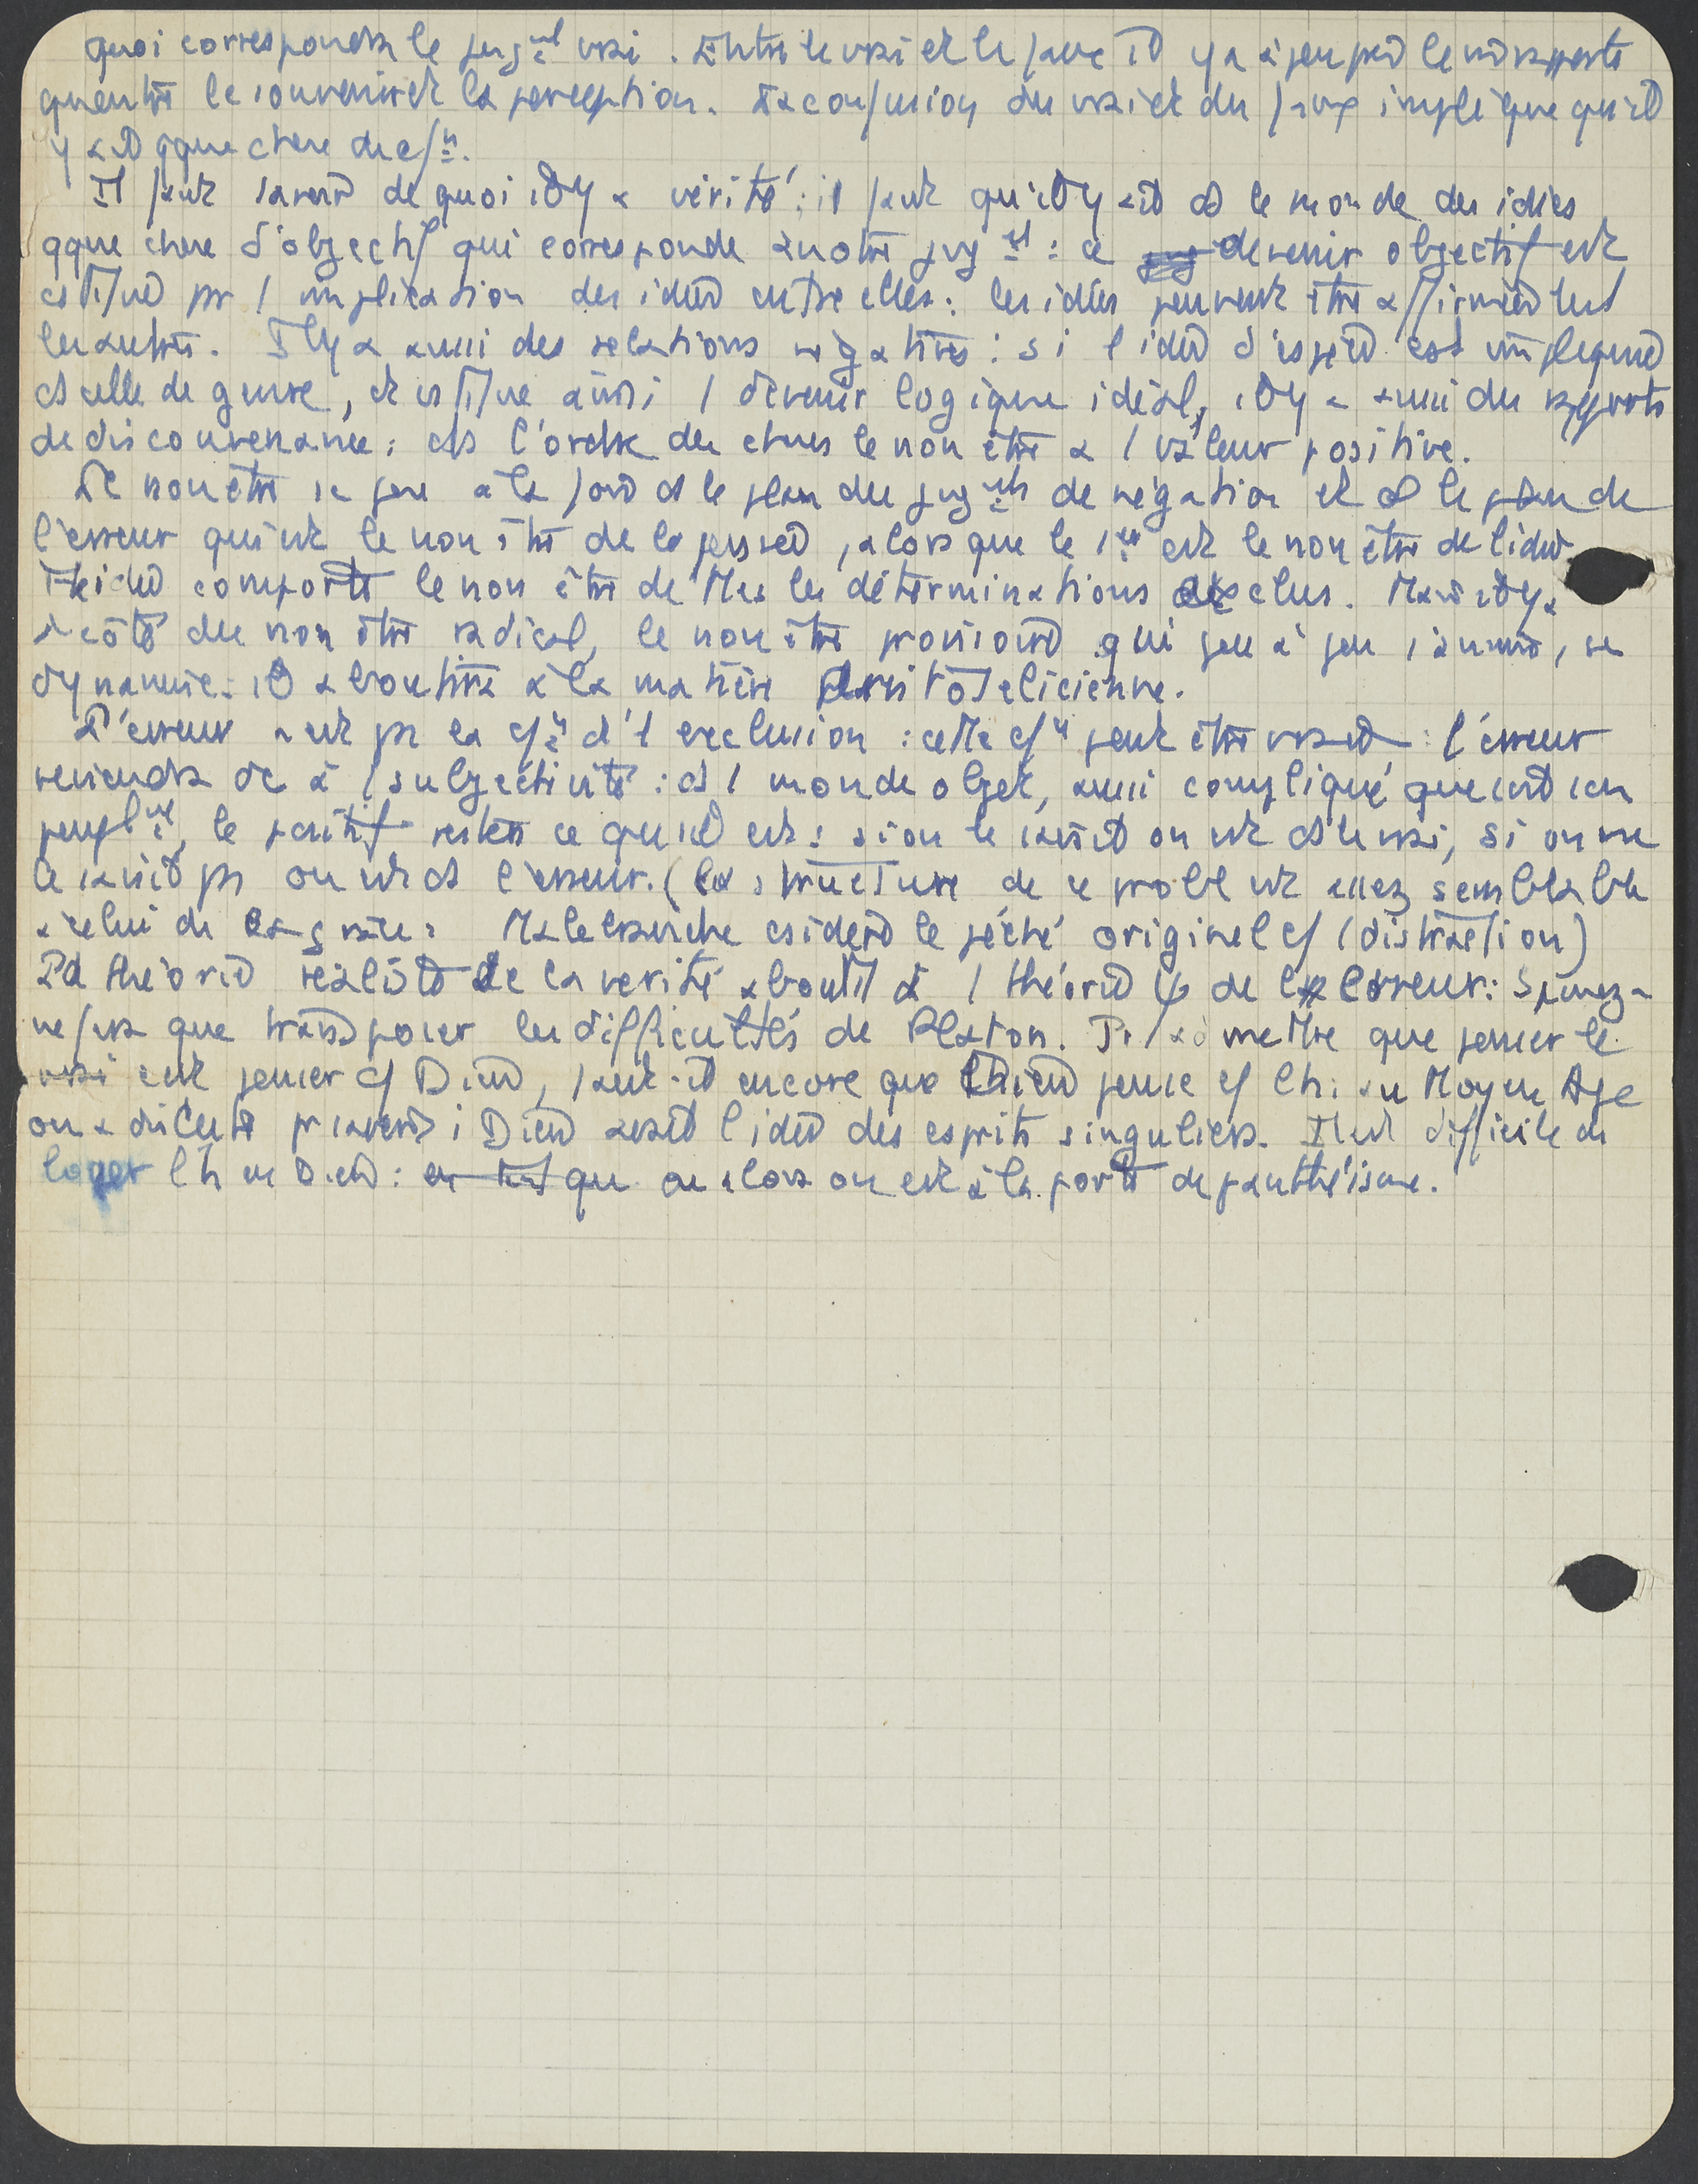 quoi correspondra le jugmt vrai. Entre le vrai et le faux il y a à peu près le m̂ rapports
qu'entre le souvenir et la perception. La confusion du vrai et du faux implique qu'il
y ait qque chose de cfn.
Il faut savoir de quoi il y a vérité ; il faut qu'il y ait ds le monde des idées
qque chose d'objectif qui corresponde à notre jugt : ce devenir objectif est
cstitué pr l'implication des idées entre elles : les idées peuvent être affirmées les
les autres. Il y a aussi des relations négatives : si l'idée d'espèce est impliquée
ds celle de genre, et cstitue ainsi 1 devenir logique idéal, il y a aussi des rapports
de disconvenance : ds l'ordre des choses le non être a 1 valeur positive.
Le non être se pose à la fois ds le plan des jugmts de négation et ds le plan de
l'erreur qui est le non être de la pensée, alors que le 1er est le non être de l'idée.
L'idée comporte le non être de ttes les déterminations exclues. Mais il y a
à côté du non être radical, le non être provisoire qui peu à peu s'anime, se
dynamise : il aboutira à la matière aristotélicienne.
L'erreur naît pr la cfn d'1 exclusion : cette cfn peut être vraie : l'erreur
reviendra dc à 1 subjectivité : ds 1 monde objet, aussi compliqué que soit son
peuplmt, le positif restera ce qu'il est : si on le saisit on est ds le vrai, si on ne
le saisit ps on est ds l'erreur. (la structure de ce probl est assez semblable
à celui de la grâce : Malebranche csidère le péché originel cf 1 distraction)
La théorie réaliste de la vérité aboutit à 1 théorie ψ de l'erreur : Spinoza
ne fera que transposer les difficultés de Platon. Pr admettre que penser le
vrai est penser cf Dieu, faut-il encore que Dieu pense cf l'h : au Moyen Age
on a discuté pr savoir si Dieu avait l'idée des esprits singuliers. Il est difficile de
loger l'h en Dieu : en tant que ou alors on est à la porte du panthéisme.